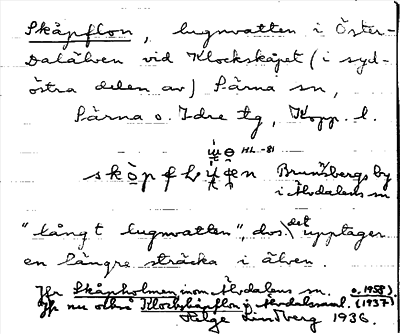 Skåpflon, lugnvatten i Öster-
Dalälven vid Klockskåpet (i syd-
östra delen av) Särna sn,
Särna o. Idre tg, Kopp. l.
HL -81
Brunnbergs by
i Älvdalens sn
"långt lugnvatten", dvs. det upptager
en längre sträcka i älven.
Jfr Skåpholmen inom Älvdalens sn. o. 1958).
Jfr nu också Klockskåpflon i Älvdalsmål. (1937)
Helge Lindberg 1936.